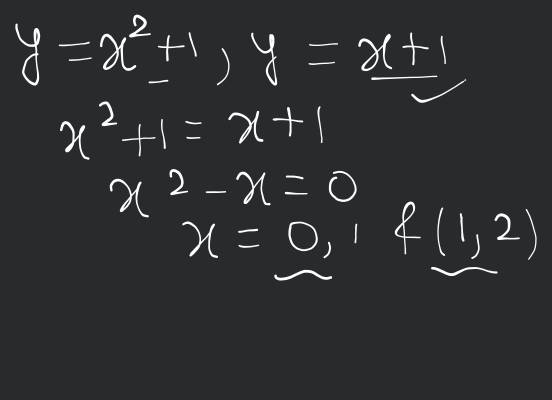 y = x² + 1, y = x + 1
x² + 1 = x + 1
x² - x = 0
x = 0, 1 & (1, 2)